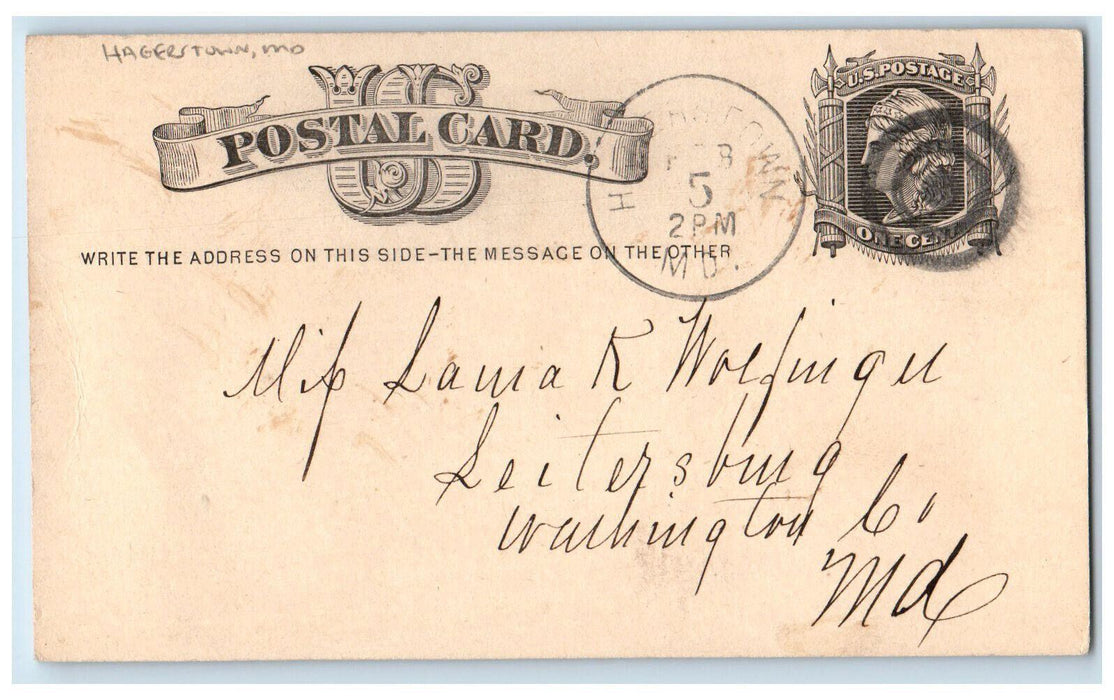 HAGERSTOWN, MD
US
POSTAL CARD.
U.S. POSTAGE
ONE CENT
HAGERSTOWN
FEB
5
2 PM
MD.
WRITE THE ADDRESS ON THIS SIDE-THE MESSAGE ON THE OTHER
Miss Laura K Wolfinger
Leitersburg
Washington Co
Md